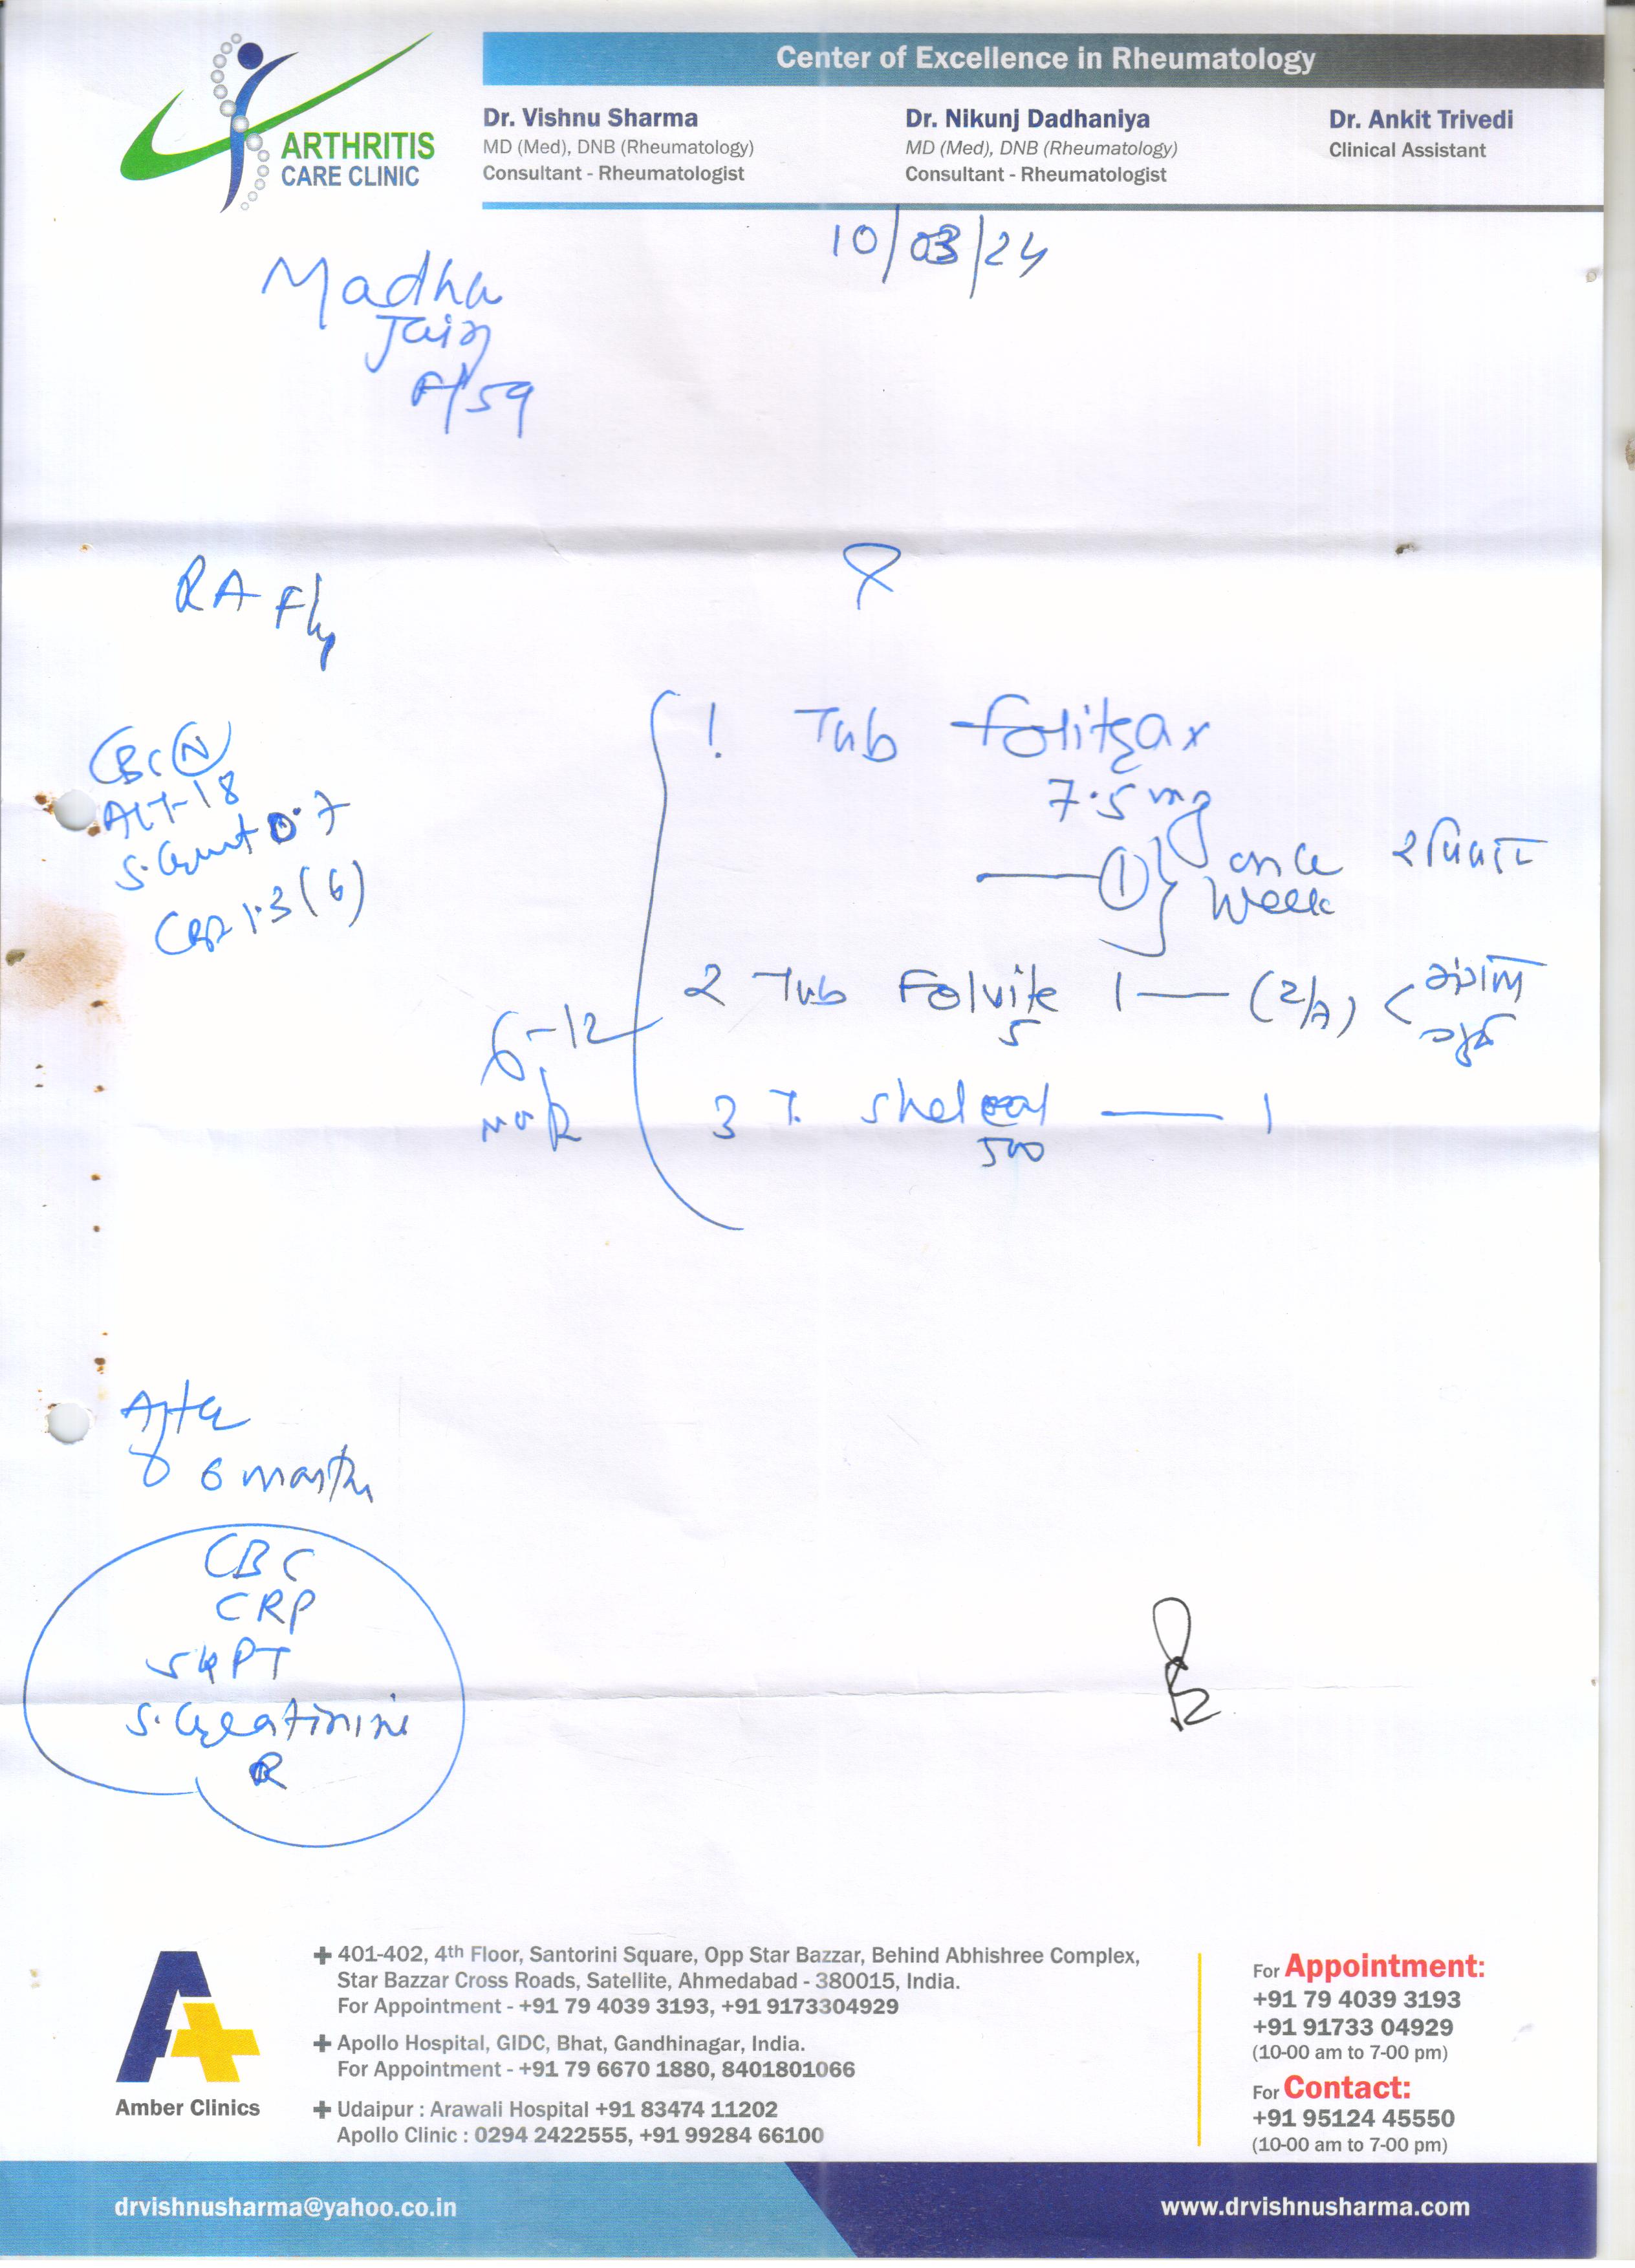 Center of Excellence in Rheumatology
ARTHRITIS
CARE CLINIC
Dr. Vishnu Sharma
MD (Med), DNB (Rheumatology)
Consultant - Rheumatologist
Dr. Nikunj Dadhaniya
MD (Med), DNB (Rheumatology)
Consultant - Rheumatologist
Dr. Ankit Trivedi
Clinical Assistant
10/03/24
Madhu
Jain
F/59
RA
CBC N
ALT-18
S. 0.7
CRP 1.3 (6)
1. Tab folitrax
7.5 mg
1 once
week
रविवार
2 Tab Folvite 1 — (2/7)
5
6-12
3 T. shelcal — 1
500
After
6 month
CBC
CRP
SGPT
S. Creatinine
Amber Clinics
401-402, 4th Floor, Santorini Square, Opp Star Bazzar, Behind Abhishree Complex,
Star Bazzar Cross Roads, Satellite, Ahmedabad - 380015, India.
For Appointment - +91 79 4039 3193, +91 9173304929
Apollo Hospital, GIDC, Bhat, Gandhinagar, India.
For Appointment - +91 79 6670 1880, 8401801066
Udaipur : Arawali Hospital +91 83474 11202
Apollo Clinic : 0294 2422555, +91 99284 66100
For Appointment:
+91 79 4039 3193
+91 91733 04929
(10-00 am to 7-00 pm)
For Contact:
+91 95124 45550
(10-00 am to 7-00 pm)
drvishnusharma@yahoo.co.in
www.drvishnusharma.com